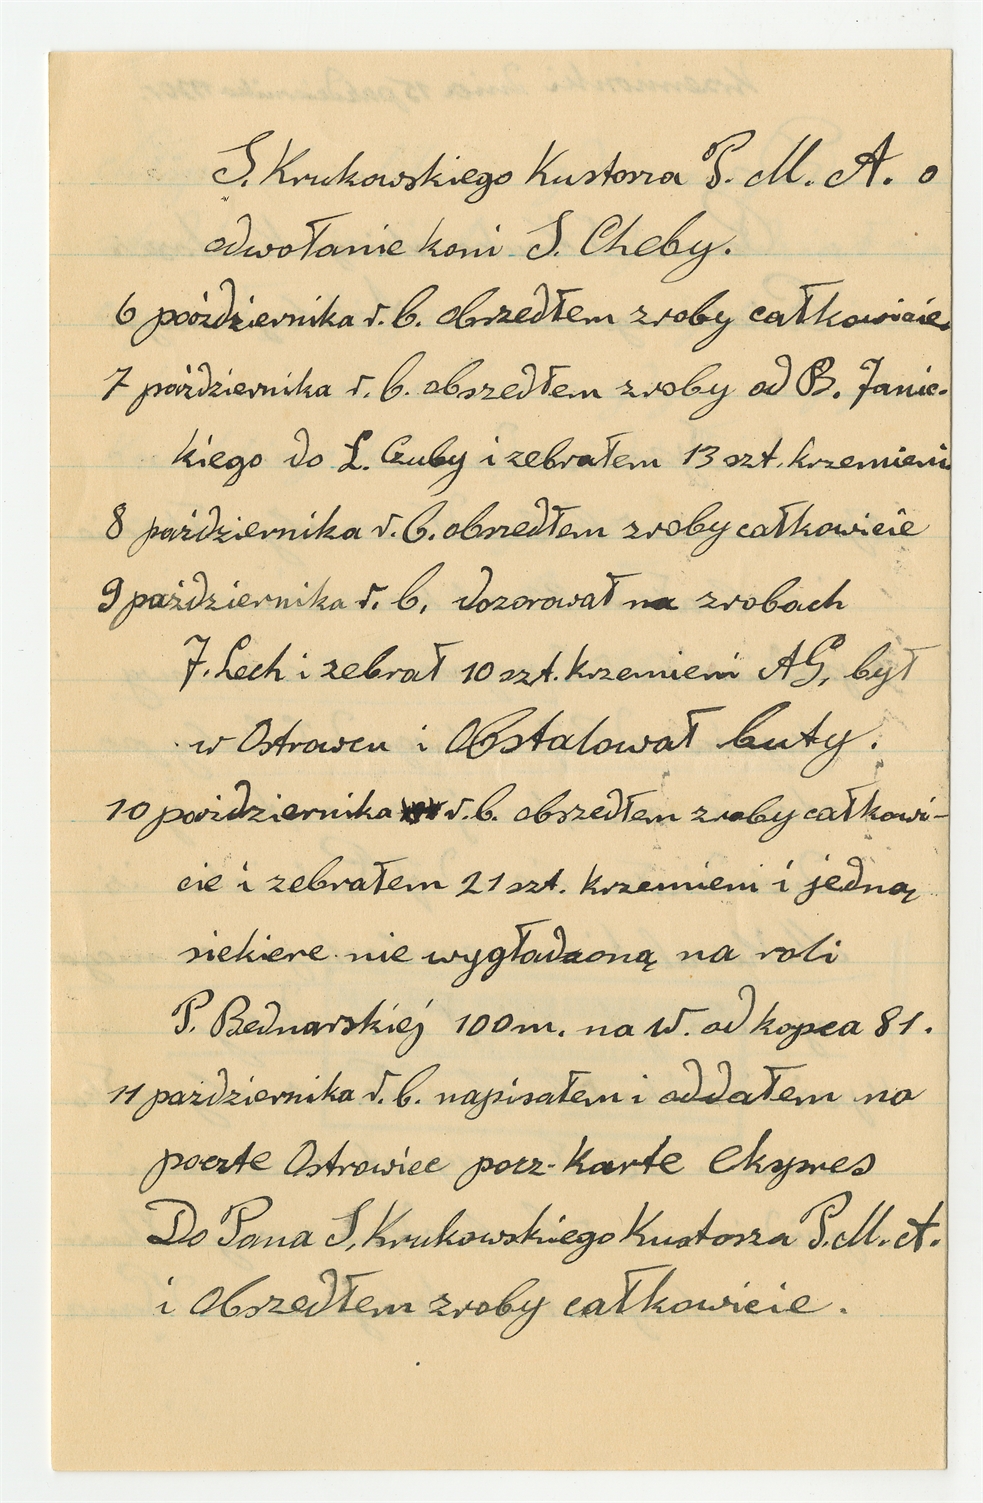 S. Krukowskiego Kustosza P. M. A. o
odwołanie koni S. Cheby.
6 paździžiernika r. b. obszedłem zroby całkowicie.
7 październžika r. b. obszedłem zroby od B. Janic-
kiego do L. Czuby i zebrałem 13 szt. krzemieni
8 październžika r. b. obszedłem zroby całkowicie
9 października r. b. dozorował na zrobach
J. Lech i zebrał 10 szt. krzemieni AG, był
w Ostrowcu i Obstalował buty.
10 października r. b. obszedłem zroby całkowi-
cie i zebrałem 21 szt. krzemieni i jedną
siekiere nie wygładzoną na roli
P. Bednarskiej 100 m. na W. od kopca 81.
11 października r. b. napisałem i oddałem na
poczte Ostrowiec pocz-karte ekspres
Do Pana S. Krukowskiego Kustosza P. M. A.
i Obszedłem zroby całkowicie.